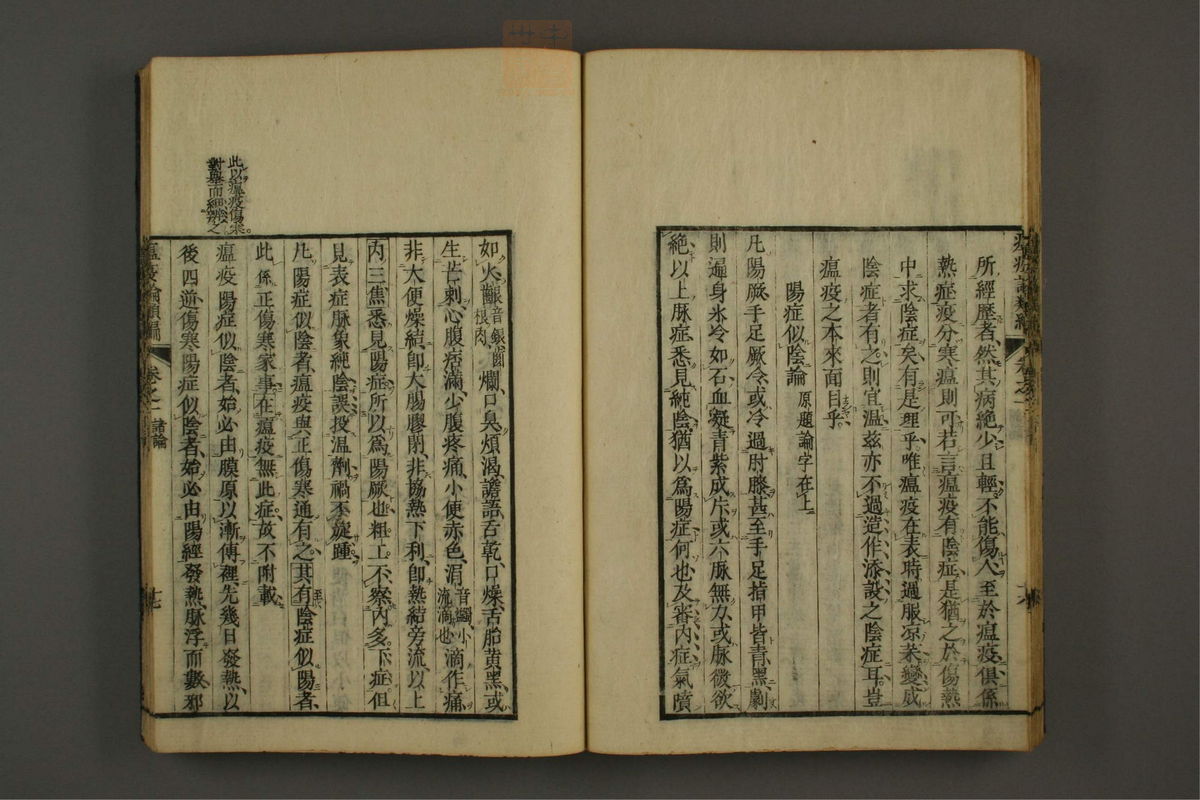 所經歷者、然其病絶少且輕、不能傷人、至於瘟疫、俱係
熱症、疫分寒瘟則可、若言瘟疫有陰症、是猶之於傷熱
中求陰症矣、有是理乎、唯瘟疫在表時、過服凉藥、變成
陰症者有之、則宜温、兹亦不過造作添設之陰症耳、豈
瘟疫之本來面目乎、
陽症似陰論 原題論字在上
凡陽厥、手足厥冷、或冷過肘膝、甚至手足指甲皆青黑、劇
則遍身氷冷如石、血凝青紫成片、或六脉無力、或脉微欲
絶、以上脉症、悉見純陰、猶以爲陽症何也、及審內症、氣噴
此以瘟疫傷寒
對舉而細辨之
如火、齦 音銀齒根肉 爛口臭、煩渴譫語、舌乾口燥、舌胎黄黑、或
生芒刺、心腹痞滿、少腹疼痛、小便赤色、涓 音蠲小流滴也 滴作痛、
非大便燥結、即大腸膠閉、非協熱下利、即熱結旁流、以上
內三焦悉見陽症、所以爲陽厥也、粗工不察內多下症、但
見表症脉象純陰、誤投温劑、禍不旋踵、
凡陽症似陰者、瘟疫與正傷寒通有之、其有陰症似陽者、
此係正傷寒家事、在瘟疫無此症、故不附載、
瘟疫陽症似陰者、始必由膜原、以漸傳裡、先幾日發熱、以
後四逆、傷寒陽症似陰者、始必由陽經發熱、脉浮而數、邪
瘟疫論類編 卷之二 諸論 十七